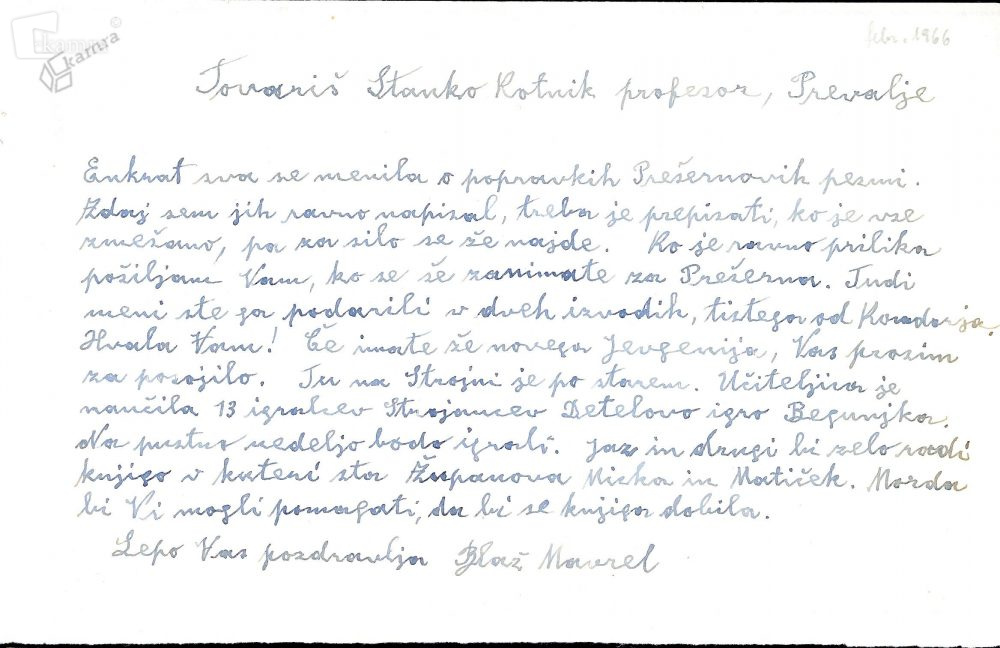 kamra
febr. 1966
Tovariš Stanko Kotnik profesor, Prevalje
Enkrat sva se menila o popravkih Prešernovih pesmi.
Zdaj sem jih ravno napisal, treba je prepisati, ko je vse
zmešano, pa za silo se že najde. Ko je ravno prilika
pošiljam Vam, ko se še zanimate za Prešerna. Tudi
meni ste ga podarili v dveh izvodih, tistega od Kondorja.
Hvala Vam! Če imate že novega Jevgenija, Vas prosim
za posojilo. Tu na Strojni je po starem. Učiteljica je
naučila 13 igralcev Strojancev Detelovo igro Begunjka.
Na pustno nedeljo bodo igrali. Jaz in drugi bi zelo radi
knjigo v kateri sta Županova Micka in Matiček. Morda
bi Vi mogli pomagati, da bi se knjiga dobila.
Lepo Vas pozdravlja Blaž Mavrel